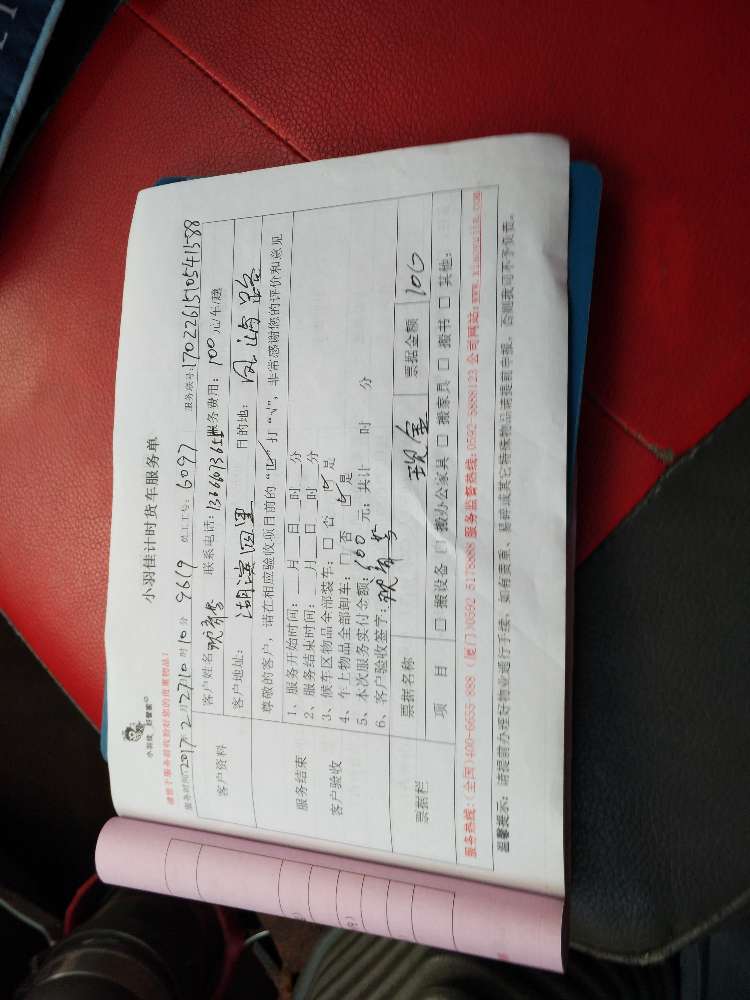 小羽佳计时货车服务单
小羽佳 好管家
请您于服务前收拾好您的贵重物品！
服务时间：2017年2月27日10时10分 9619 员工工号：6097 服务账号：1702261510541588
客户资料
客户姓名 联系电话： 服务费用：100元/车/趟
客户地址：湖滨四里 目的地：
尊敬的客户，请在相应验收项目前的“□”打“√”，非常感谢您的评价和意见
服务结束
客户验收
1、服务开始时间：__月__日__时__分
2、服务结束时间：__月__日__时__分
3、候车区物品全部装车：□ 否 ☑ 是
4、车上物品全部卸车：□ 否 ☑ 是
5、本次服务实付金额：100 元；共计 时 分
6、客户验收签字：
票据栏
票据名称 现金 票据金额 100
项 目 □ 搬设备 □ 搬办公家具 □ 搬家具 □ 搬书 □ 其他：
服务热线：（全国）400-6655-888 （厦门）0592 5175888 服务监督热线：0592-5888123 公司网站：
温馨提示：请提前办理好物业通行手续，如有贵重、易碎或其它特殊物品请提前申报，否则我司不予负责。